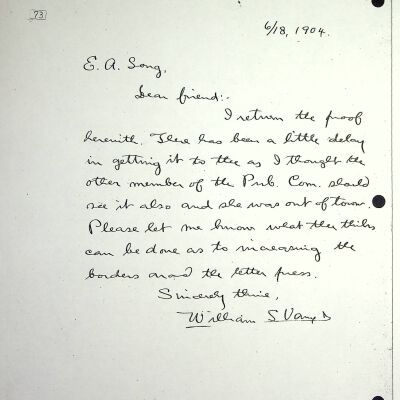 73
6/18, 1904.
E. A. Song,
Dear friend:-
I return the proof
herewith. There has been a little delay
in getting it to thee as I thought the
other member of the Pub. Com. should
see it also and she was out of town.
Please let me know what thee thinks
can be done as to increasing the
borders around the letter press.
Sincerely thine,
William S